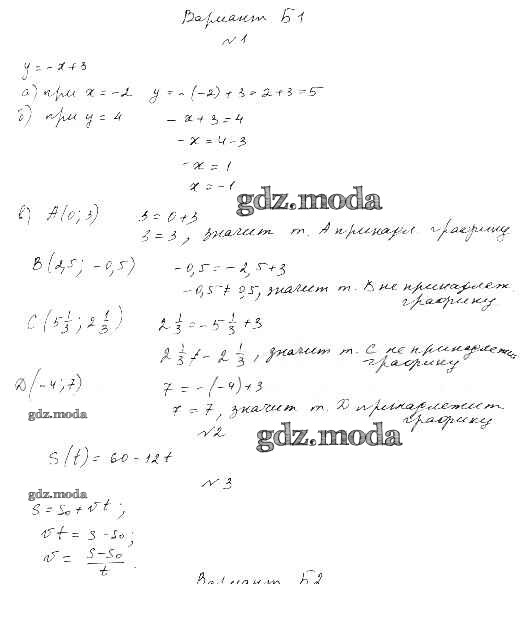 Вариант Б1
№1
y = -x+3
а) при x = -2 y = -(-2)+3 = 2+3 = 5
б) при y = 4 -x+3 = 4
-x = 4-3
-x = 1
x = -1
gdz.moda
в) A(0; 3) 3 = 0+3
3 = 3, значит т. A принадл. графику
B(2,5; -0,5) -0,5 = -2,5+3
-0,5 ≠ 0,5, значит т. B не принадлеж.
графику
C(5 1/3; 2 1/3) 2 1/3 = -5 1/3 + 3
2 1/3 ≠ -2 1/3, значит т. C не принадлежит
графику
D(-4; 7) 7 = -(-4)+3
7 = 7, значит т. D принадлежит
графику
gdz.moda
№2
gdz.moda
S(t) = 60-12t
№3
gdz.moda
s = s₀ + vt;
vt = s - s₀;
v = (s-s₀)/t.
Вариант Б2